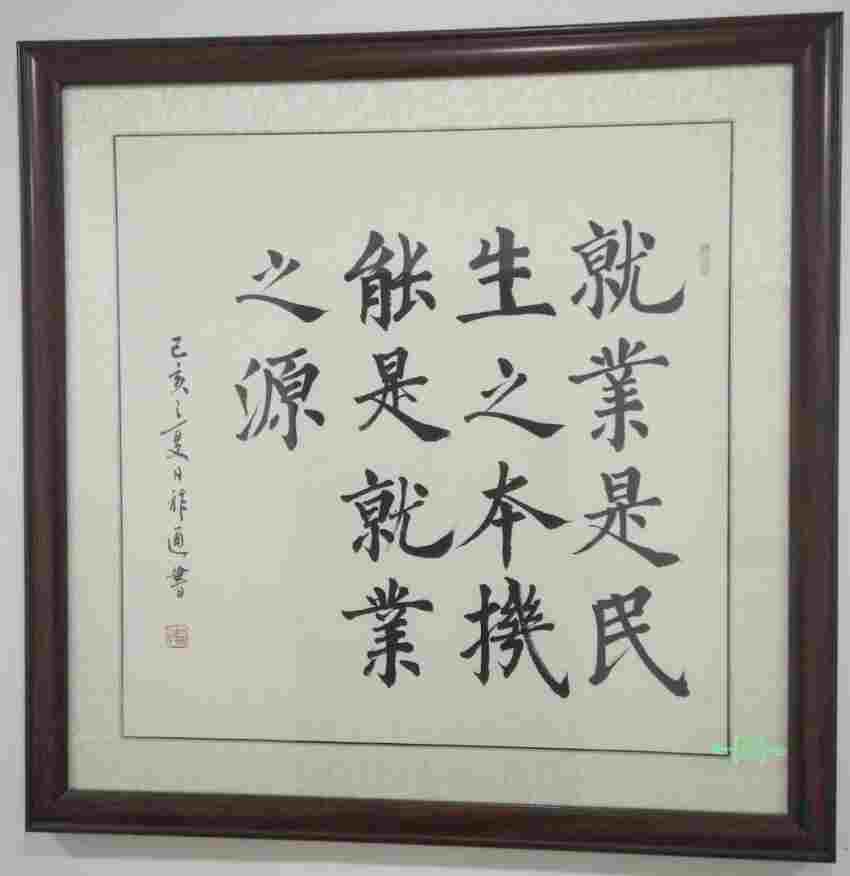 就業是民
生之本機
能是就業
之源
己亥之夏日祚通書